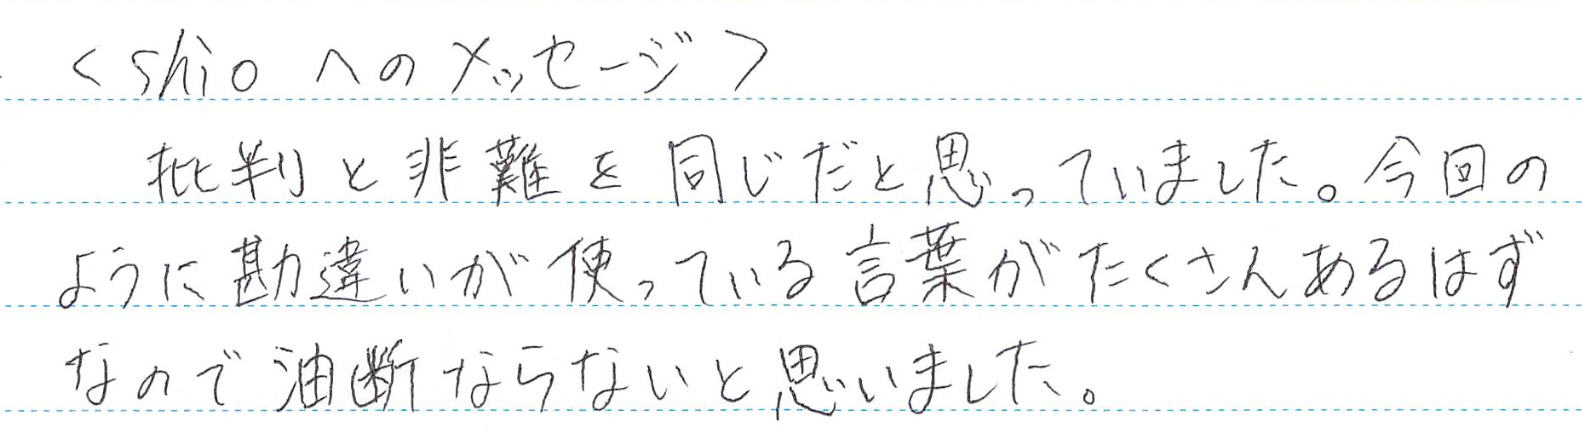 <shioへのメッセージ>
批判と非難を同じだと思っていました。今回の
ように勘違いが使っている言葉がたくさんあるはず
なので油断ならないと思いました。